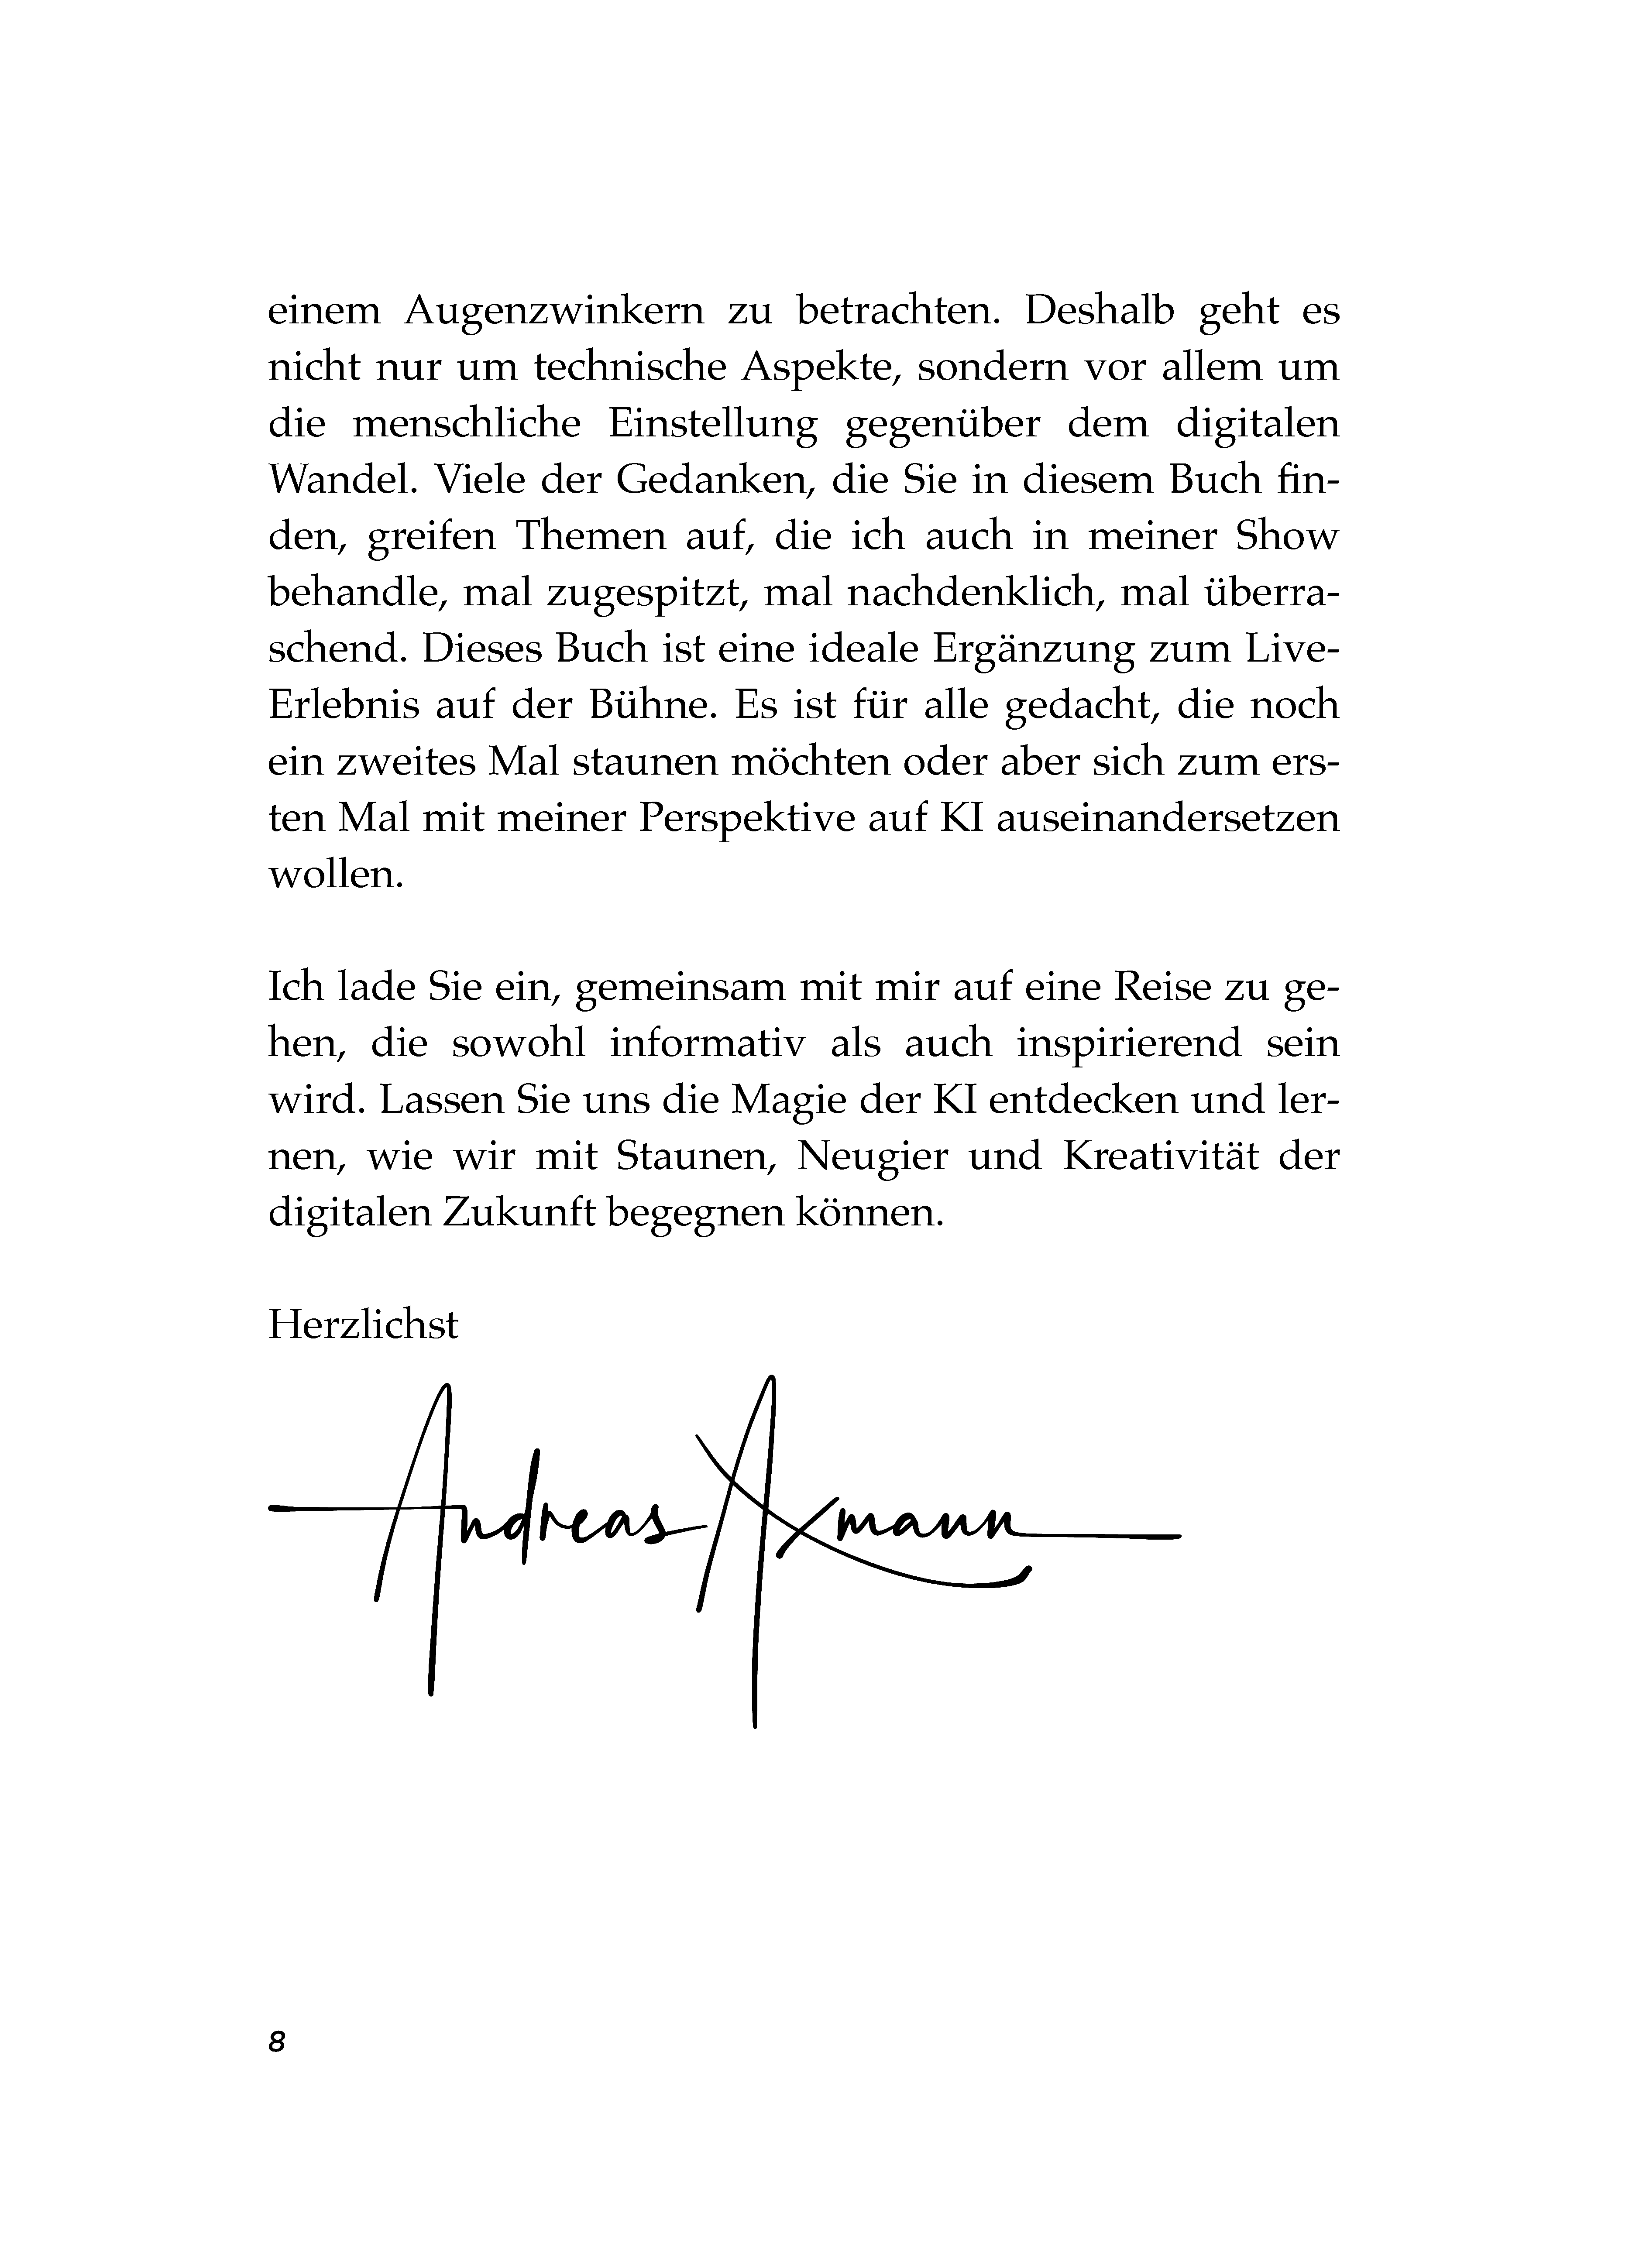 einem Augenzwinkern zu betrachten. Deshalb geht es
nicht nur um technische Aspekte, sondern vor allem um
die menschliche Einstellung gegenüber dem digitalen
Wandel. Viele der Gedanken, die Sie in diesem Buch fin-
den, greifen Themen auf, die ich auch in meiner Show
behandle, mal zugespitzt, mal nachdenklich, mal überra-
schend. Dieses Buch ist eine ideale Ergänzung zum Live-
Erlebnis auf der Bühne. Es ist für alle gedacht, die noch
ein zweites Mal staunen möchten oder aber sich zum ers-
ten Mal mit meiner Perspektive auf KI auseinandersetzen
wollen.
Ich lade Sie ein, gemeinsam mit mir auf eine Reise zu ge-
hen, die sowohl informativ als auch inspirierend sein
wird. Lassen Sie uns die Magie der KI entdecken und ler-
nen, wie wir mit Staunen, Neugier und Kreativität der
digitalen Zukunft begegnen können.
Herzlichst
Andreas Axmann
8